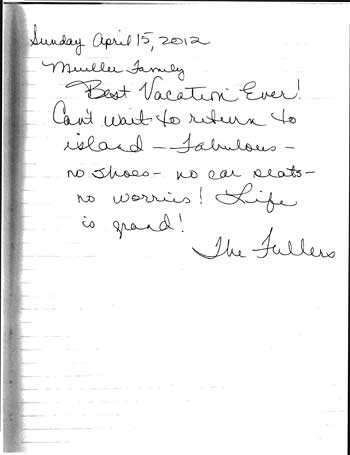 Sunday April 15, 2012
Mueller Family
Best Vacation Ever!
Can't wait to return to
island - Fabulous -
no shoes - no car seats -
no worries! Life
is grand!
The Fullers